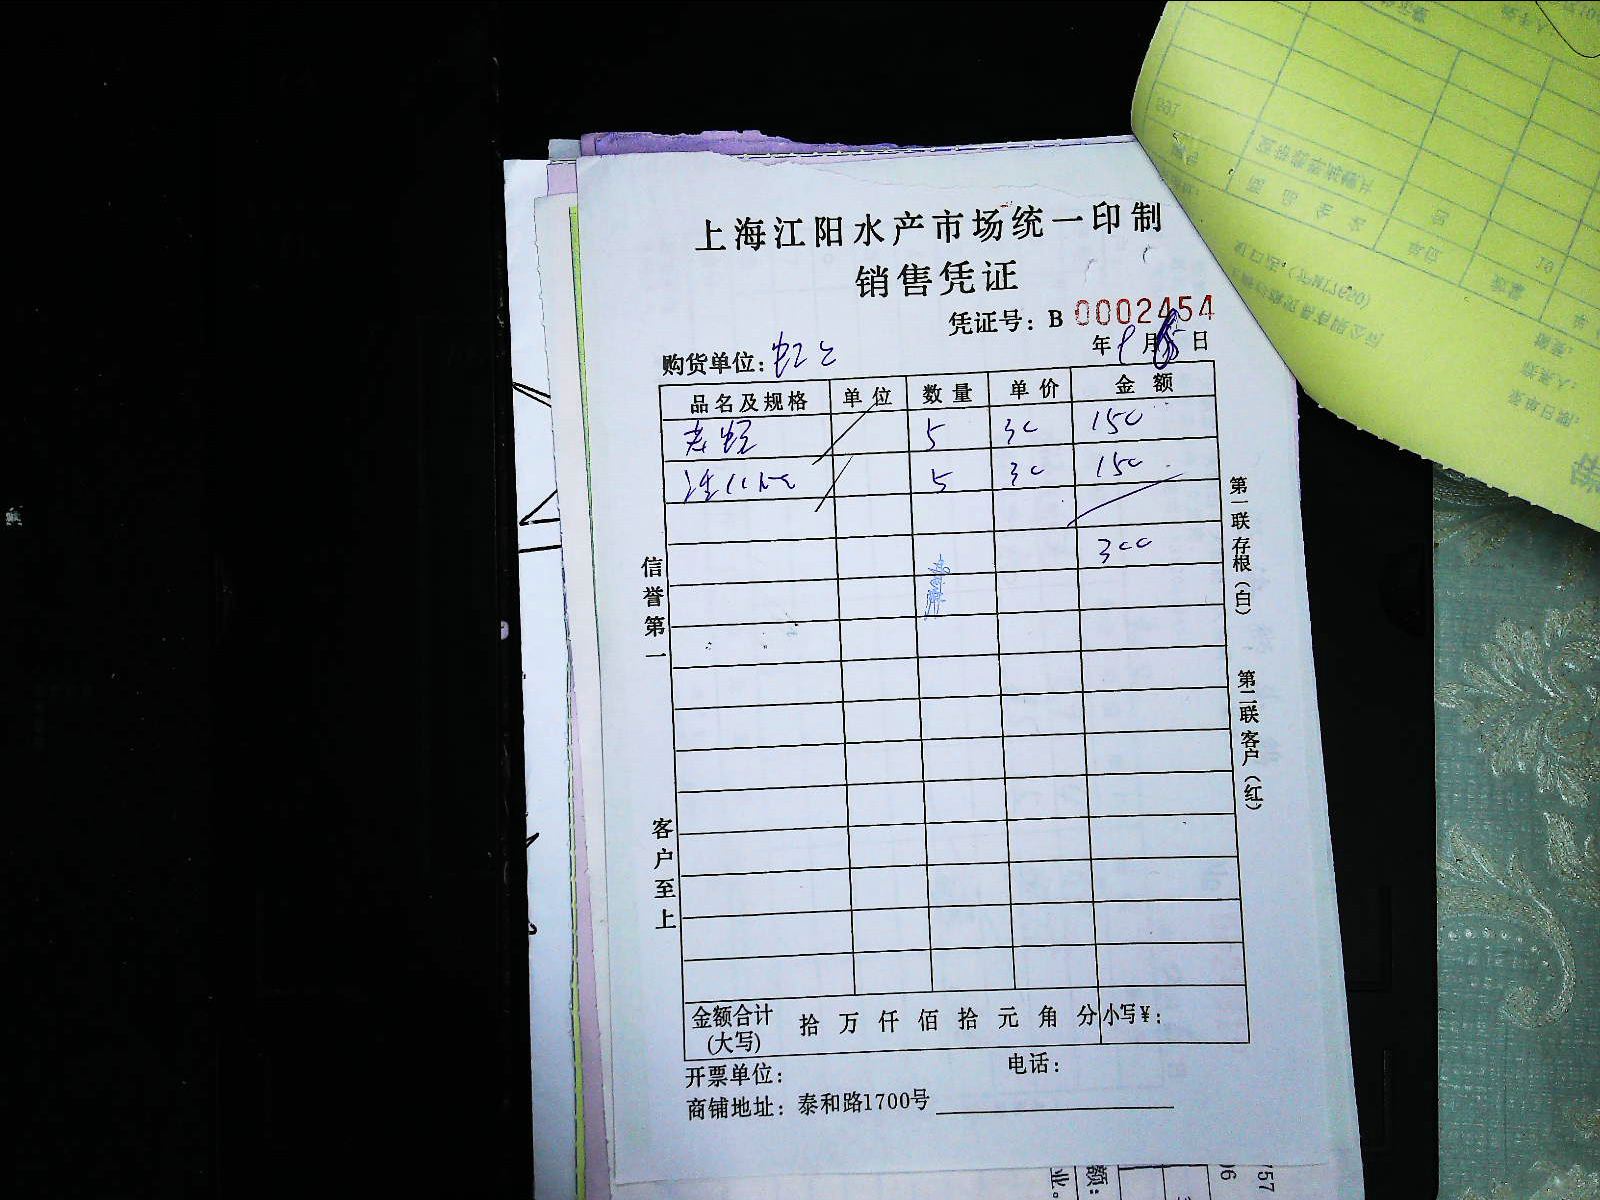 上海江阳水产市场统一印制
销售凭证
凭证号：B 0002454
年 9 月 日
购货单位：虹上
品名及规格 单位 数量 单价 金额
5 30 150
5 30 150
300
信誉第一
客户至上
第一联存根（白）
第二联客户（红）
金额合计(大写) 拾 万 仟 佰 拾 元 角 分 小写¥：
开票单位： 电话：
商铺地址：泰和路1700号